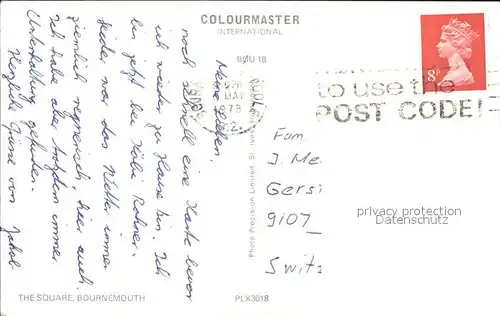 COLOURMASTER
INTERNATIONAL
BOU 18
Meine Lieben,
noch schnell eine Karte bevor
ich wieder zu Hause bin. Ich
bin jetzt bei Rohner.
Leider war das Wetter immer
ziemlich regnerisch, hier auch.
Ich habe aber trotzdem immer
Unterhaltung gefunden.
Herzliche Grüsse von Jakob
THE SQUARE, BOURNEMOUTH
PLX3018
Photo Precision Limited, St. Ives
MAY
1978
to use the
POST CODE!
8P
Fam.
J. Me
Gers
9107
Switz
privacy protection
Datenschutz